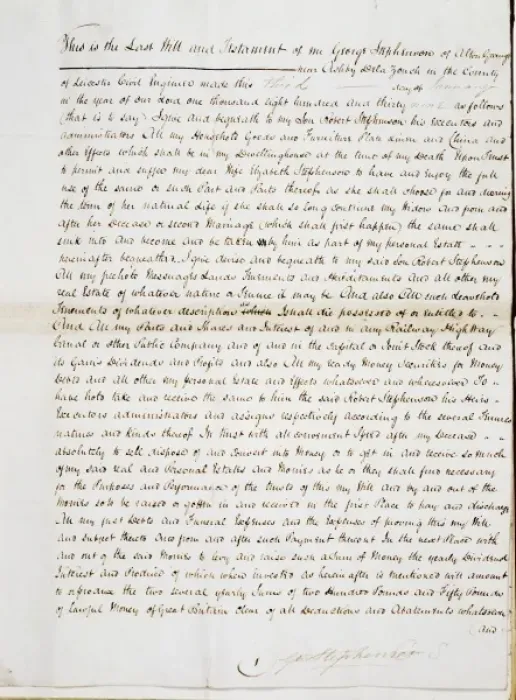 This is the Last Will and Testament of me George Stephenson of Alton Grange
near Ashby De la Zouch in the County
of Leicester Civil Engineer made this third day of January
in the year of our Lord one thousand eight hundred and thirty nine as follows
(that is to say) I give and bequeath to my Son Robert Stephenson his Executors and
administrators All my Household Goods and Furniture Plate Linen and China and
other Effects which shall be in my Dwellinghouse at the time of my Death Upon Trust
to permit and suffer my dear Wife Elizabeth Stephenson to have and enjoy the full
use of the same or such Part and Parts thereof as she shall choose for and during
the term of her natural Life if she shall so long continue my Widow And from and
after her Decease or second Marriage (which shall first happen) the same shall
sink into and become and be taken by him as part of my personal Estate
hereinafter bequeathed. I give devise and bequeath to my said Son Robert Stephenson
All my freehold Messuages Lands Tenements and Hereditaments and All other my
real Estate of whatever nature or Tenure it may be And also All such leasehold
Tenements of whatever description I shall die possessed of or entitled to
And All my Parts and Shares and Interest of and in any Railway High Way
Canal or other Public Company and of and in the Capital or Joint Stock thereof and
its Gains Dividends and Profits and also All my ready Money Securities for Money
Debts and all other my personal Estate and Effects whatsoever and wheresoever To
have hold take and receive the same to him the said Robert Stephenson his Heirs
Executors administrators and assigns respectively according to the several Tenures
natures and kinds thereof In Trust with all convenient Speed after my Decease
absolutely to sell dispose of and convert into Money or to get in and receive so much
of my said real and Personal Estates and Monies as he or they shall find necessary
for the Purposes and Performance of the trusts of this my Will and by and out of the
Monies so to be raised or gotten in and received in the first Place to pay and discharge
All my just Debts and Funeral Expenses and the Expenses of proving this my Will
and subject thereto and from and after such Payment thereout In the next Place with
and out of the said Monies to levy and raise such a Sum of Money the yearly Dividends
Interest and Produce of which when invested as hereinafter is mentioned will amount
to or produce the two several yearly Sums of two Hundred Pounds and Fifty Pounds
of lawful Money of Great Britain clear of all Deductions and Abatements whatsoever
(and
Geo Stephenson